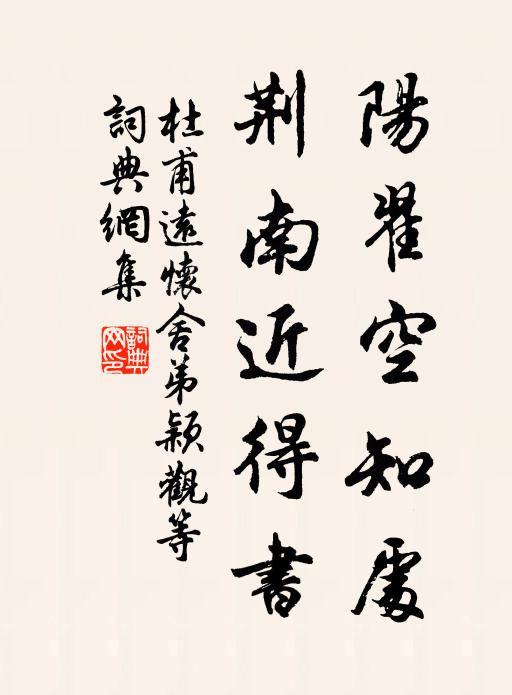 陽翟空知處
荆南近得書
杜甫遠懷舍弟穎觀等
詞典網集
詞典網印